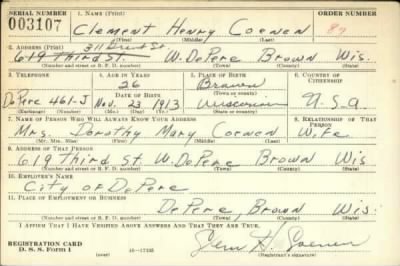 SERIAL NUMBER 1. NAME (Print) ORDER NUMBER
003107 Clement Henry Coenen 87
(First) (Middle) (Last)
2. ADDRESS (Print) 311 St.
619 Third St. W. DePere Brown Wis.
(Number and street or R. F. D. number) (Town) (County) (State)
3. TELEPHONE 4. AGE IN YEARS 5. PLACE OF BIRTH 6. COUNTRY OF CITIZENSHIP
26 Brown
DATE OF BIRTH (Town or county)
DePere 461-J Nov. 23 1913 Wisconsin U.S.A
(Exchange) (Number) (Mo.) (Day) (Yr.) (State or country)
7. NAME OF PERSON WHO WILL ALWAYS KNOW YOUR ADDRESS 8. RELATIONSHIP OF THAT PERSON
Mrs. Dorothy Mary Coenen Wife
(Mr., Mrs., Miss) (First) (Middle) (Last)
9. ADDRESS OF THAT PERSON
619 Third St. W. DePere Brown Wis
(Number and street or R. F. D. number) (Town) (County) (State)
10. EMPLOYER'S NAME
City of DePere
11. PLACE OF EMPLOYMENT OR BUSINESS
DePere, Brown Wis.
(Number and street or R. F. D. number) (Town) (County) (State)
I AFFIRM THAT I HAVE VERIFIED ABOVE ANSWERS AND THAT THEY ARE TRUE.
REGISTRATION CARD
D. S. S. Form 1 16-17105 (Registrant's signature)